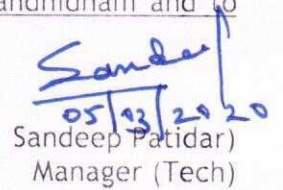 andhidham and to
Sandee
05/03/2020
Sandeep Patidar)
Manager (Tech)